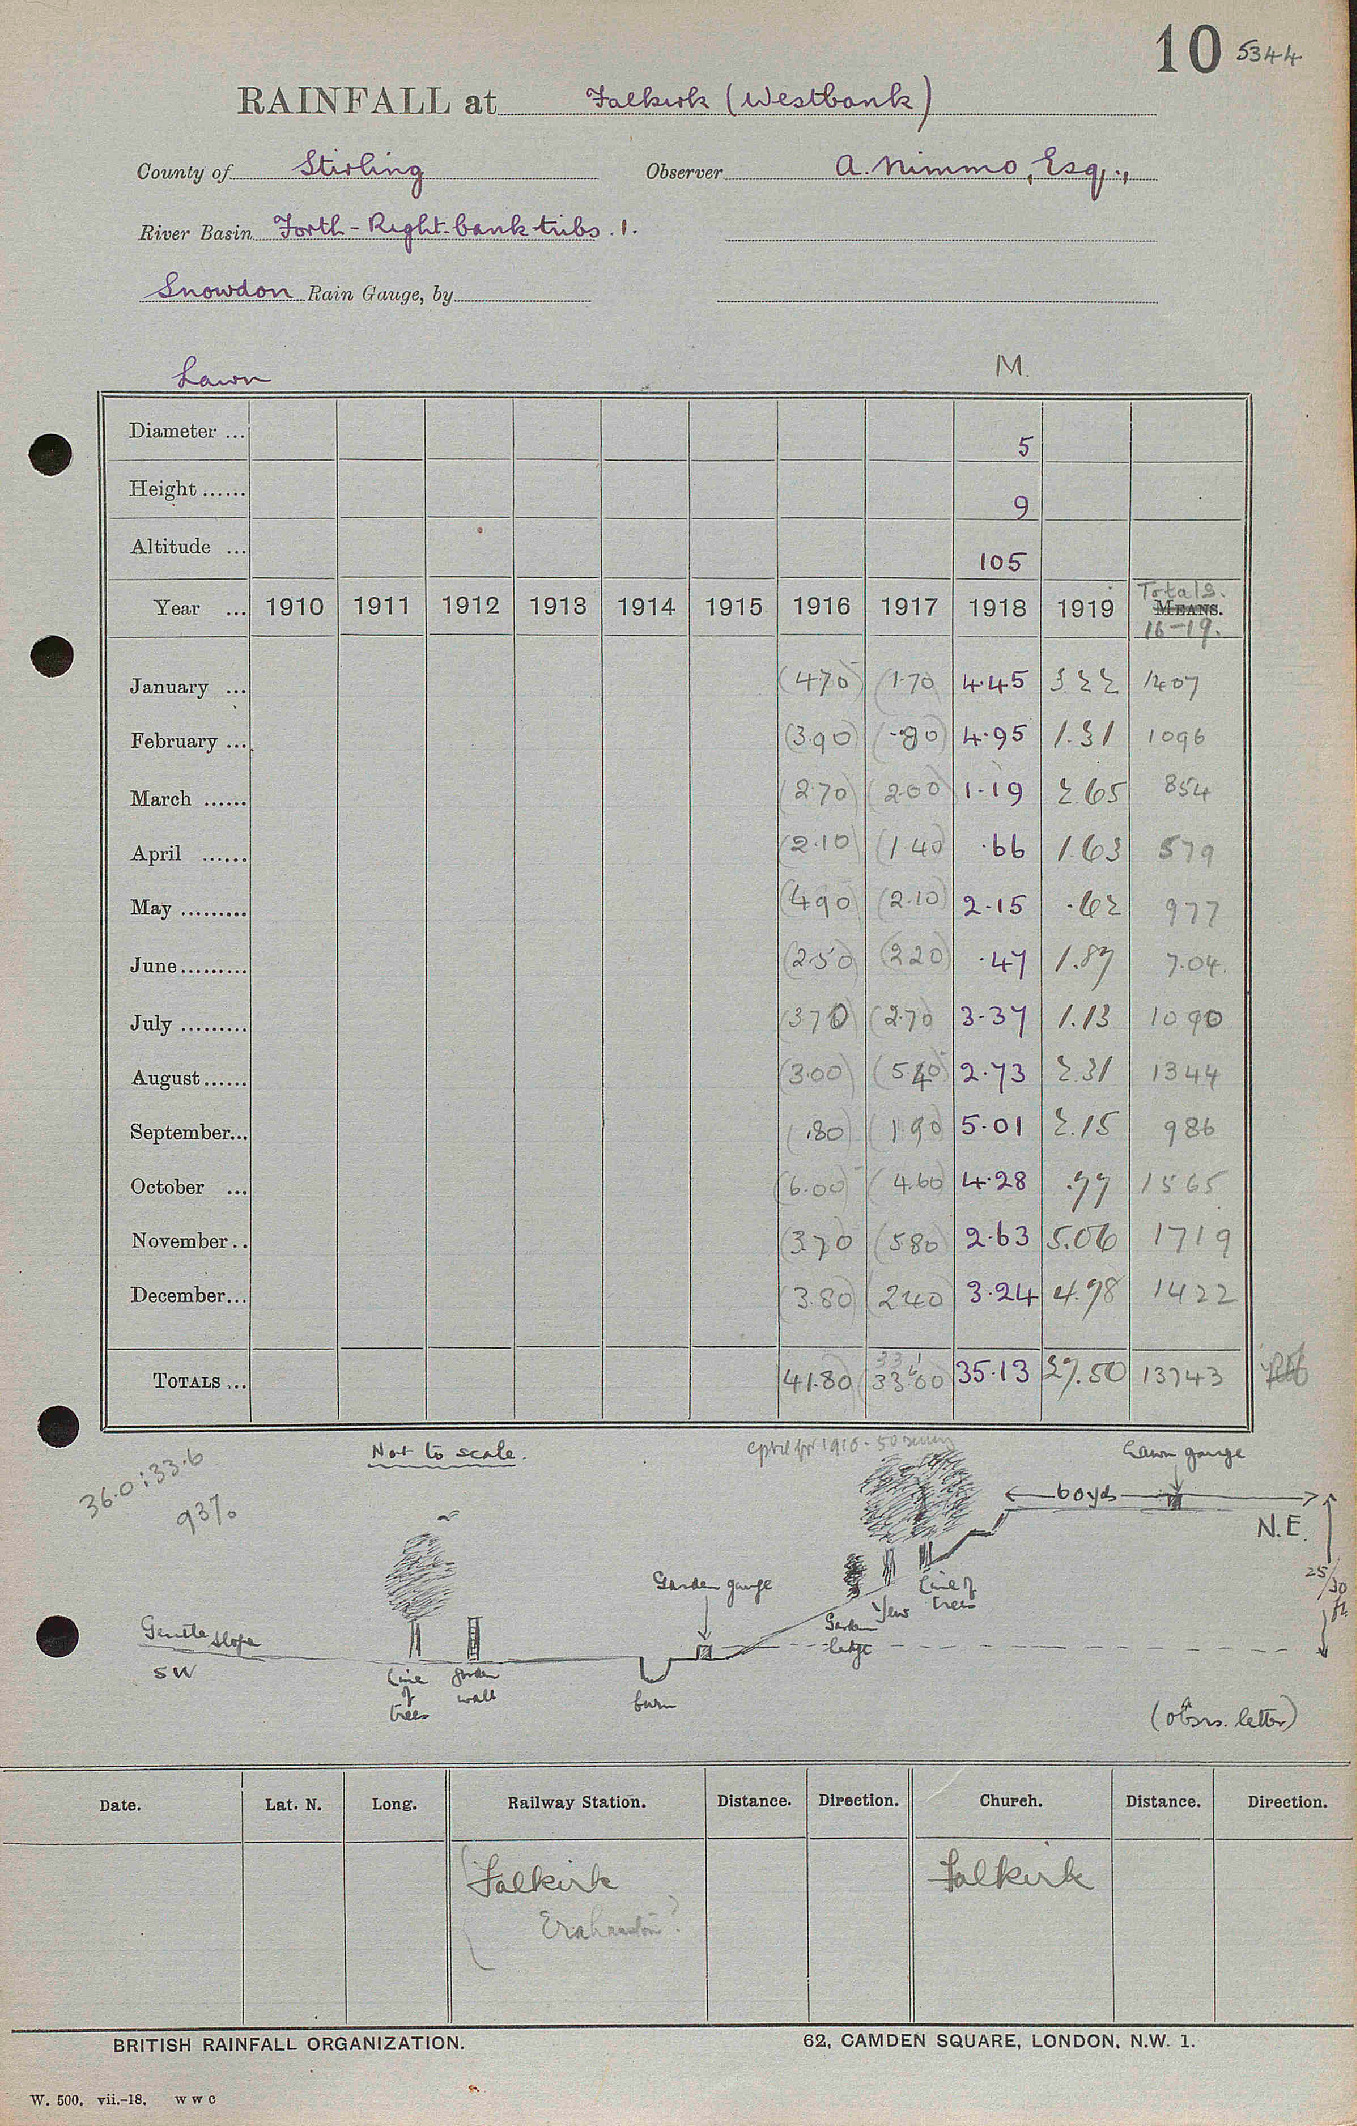 10 5344
RAINFALL at Falkirk (Westbank)
County of Stirling Observer A. Nimmo, Esq.,
River Basin Forth - Right bank tribs. 1.
Snowdon Rain Gauge, by
Lawn M.
Diameter ... 5
Height ...... 9
Altitude ... 105
Year ... 1910 1911 1912 1913 1914 1915 1916 1917 1918 1919 Totals. MEANS. 16-19.
January ... (470) (1.70) 4.45 3.22 1407
February ... (3.90) (.80) 4.95 1.31 1096
March ...... (2.70) (2.00) 1.19 2.65 854
April ...... (2.10) (1.40) .66 1.63 579
May ......... (4.90) (2.10) 2.15 .62 977
June ......... (2.50) (2.20) .47 1.87 7.04
July ......... (3.70) (2.70) 3.37 1.13 1090
August ...... (3.00) (5.40) 2.73 2.31 1344
September... (.80) (1.90) 5.01 2.15 986
October ... (6.00) (4.60) 4.28 .77 1565
November .. (3.70) (5.80) 2.63 5.06 1719
December... (3.80) (2.40) 3.24 4.98 1422
TOTALS ... 41.80 33.00 35.13 27.50 13743
36.0 : 33.6
93%
Not to scale.
Lawn gauge
60 yds
N.E.
25/30 ft
Garden gauge
Line of trees
Yew
Garden hedge
Gentle slope
SW
Line of trees
garden wall
burn
(obsrs. letter)
Date. Lat. N. Long. Railway Station. Distance. Direction. Church. Distance. Direction.
Falkirk Falkirk
BRITISH RAINFALL ORGANIZATION. 62, CAMDEN SQUARE, LONDON, N.W. 1.
W. 500. vii.-18. W W C